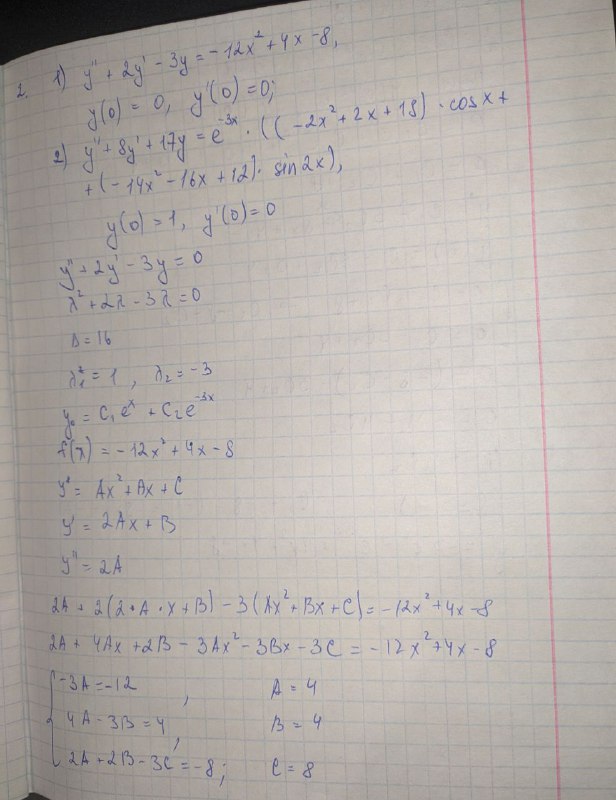 2. 1) y'' + 2y' - 3y = -12x² + 4x - 8,
y(0) = 0, y'(0) = 0;
2) y'' + 8y' + 17y = e^(-3x) · ((-2x² + 2x + 18) · cos x +
+ (-14x² - 16x + 12) · sin 2x),
y(0) = 1, y'(0) = 0
y'' + 2y' - 3y = 0
λ² + 2λ - 3λ = 0
D = 16
λ₁² = 1, λ₂ = -3
y₀ = C₁e^x + C₂e^(-3x)
f(x) = -12x² + 4x - 8
y* = Ax² + Ax + C
y' = 2Ax + B
y'' = 2A
2A + 2(2·A·x + B) - 3(Ax² + Bx + C) = -12x² + 4x - 8
2A + 4Ax + 2B - 3Ax² - 3Bx - 3C = -12x² + 4x - 8
{ -3A = -12, A = 4
4A - 3B = 4, B = 4
2A + 2B - 3C = -8; C = 8